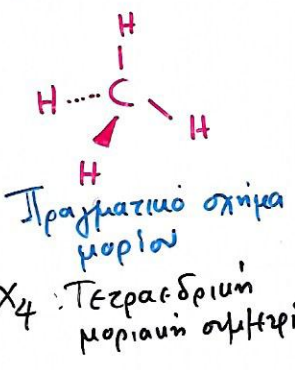 H
H C H
H
Πραγματικό σχήμα
μορίου
X4 : Τετραεδρική
μοριακή συμμετρί